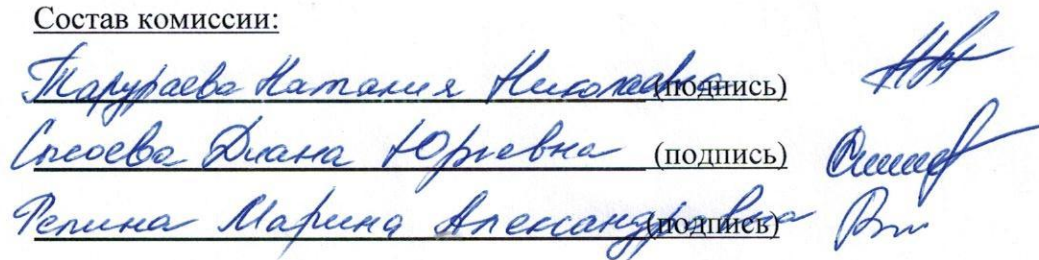 Состав комиссии:
Тарураева Наталия Николаевна (подпись)
Сысоева Диана Юрьевна (подпись)
Репина Марина Александровна (подпись)